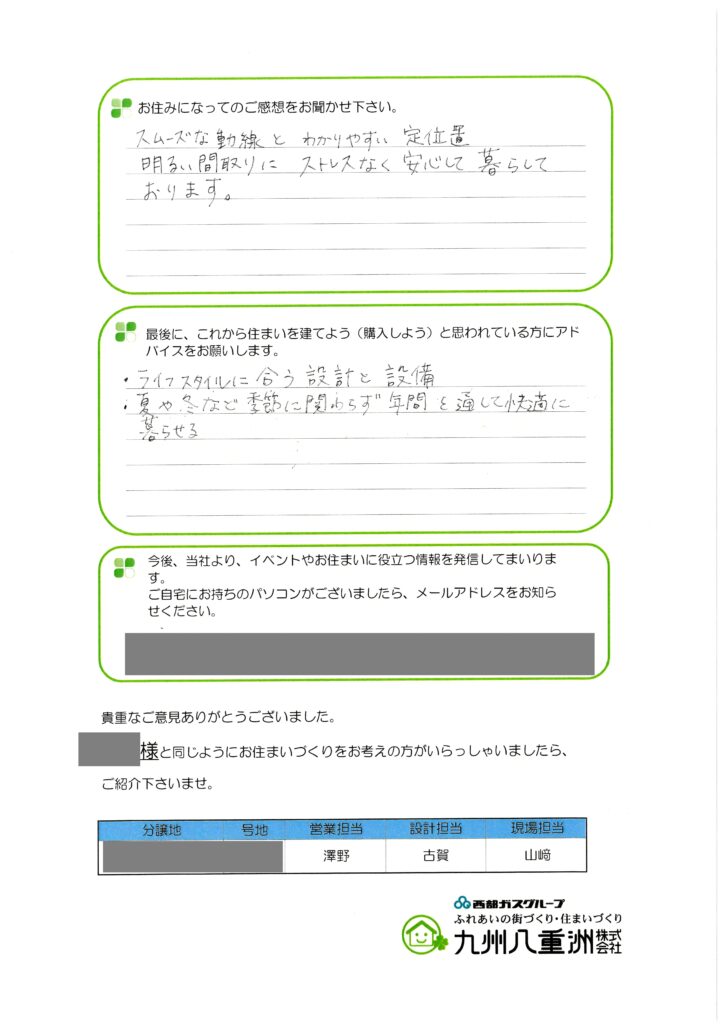 お住みになってのご感想をお聞かせ下さい。
スムーズな動線と わかりやすい 定位置
明るい間取りに ストレスなく 安心して 暮らして
おります。
最後に、これから住まいを建てよう（購入しよう）と思われている方にアド
バイスをお願いします。
・ライフスタイルに 合う 設計と 設備
・夏や冬など 季節に関わらず 年間を通して快適に
暮らせる
今後、当社より、イベントやお住まいに役立つ情報を発信してまいりま
す。
ご自宅にお持ちのパソコンがございましたら、メールアドレスをお知ら
せください。
貴重なご意見ありがとうございました。
様と同じようにお住まいづくりをお考えの方がいらっしゃいましたら、
ご紹介下さいませ。
分譲地 号地 営業担当 設計担当 現場担当
澤野 古賀 山﨑
西部ガスグループ
ふれあいの街づくり・住まいづくり
九州八重洲株式会社